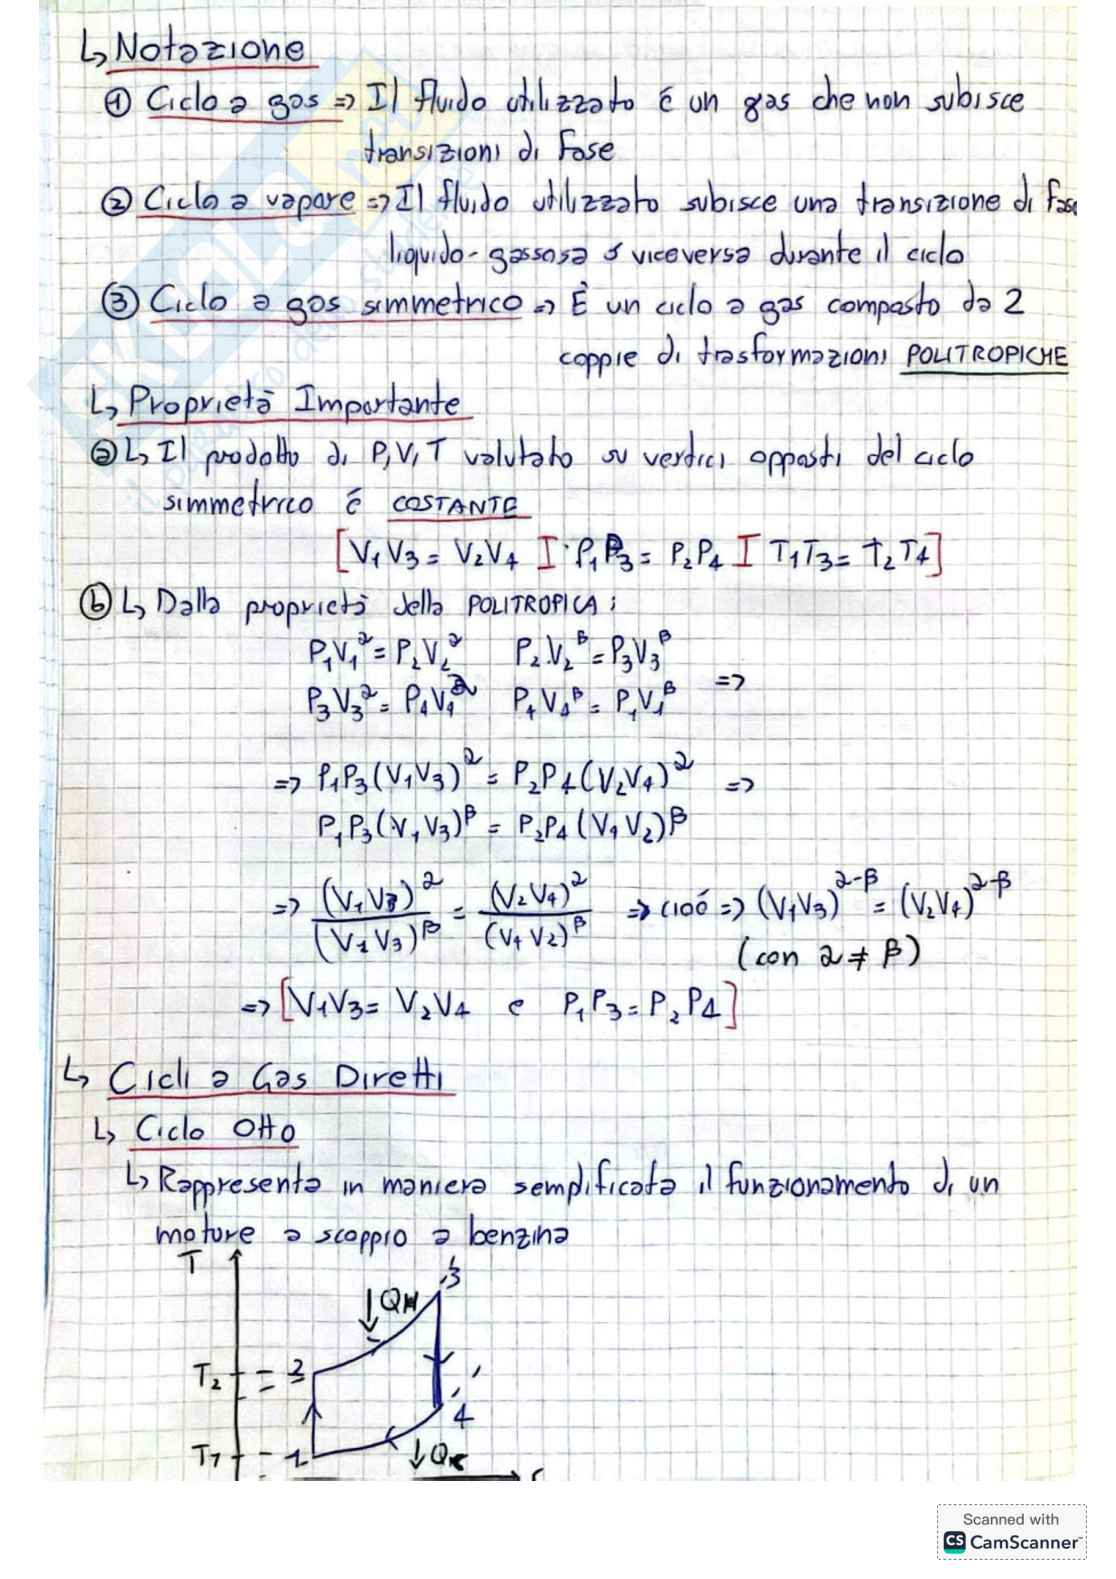 ↳ Notazione
① Ciclo a gas => Il fluido utilizzato é un gas che non subisce
transizioni di fase
② Ciclo a vapore => Il fluido utilizzato subisce una transizione di fase
liquido-gassosa e viceversa durante il ciclo
③ Ciclo a gas simmetrico => È un ciclo a gas composto da 2
coppie di trasformazioni POLITROPICHE
↳ Proprietà Importante
ⓐ ↳ Il prodotto di P,V,T valutato su vertici opposti del ciclo
simmetrico é COSTANTE
[V₁V₃ = V₂V₄ I P₁P₃ = P₂P₄ I T₁T₃ = T₂T₄]
ⓑ ↳ Dalla proprietà della POLITROPICA:
P₁V₁^α = P₂V₂^α P₂V₂^β = P₃V₃^β
=>
P₃V₃^α = P₄V₄^α P₄V₄^β = P₁V₁^β
=> P₁P₃(V₁V₃)^α = P₂P₄(V₂V₄)^α =>
P₁P₃(V₁V₃)^β = P₂P₄(V₄V₂)^β
=> (V₁V₃)^α / (V₁V₃)^β = (V₂V₄)^α / (V₄V₂)^β => cioé => (V₁V₃)^α-β = (V₂V₄)^α-β
(con α ≠ β)
=> [V₁V₃ = V₂V₄ e P₁P₃ = P₂P₄]
↳ Cicli a Gas Diretti
↳ Ciclo Otto
↳ Rappresenta in maniera semplificata il funzionamento di un
motore a scoppio a benzina
T
3
↓ QH
T₂ 2
4
T₁ 1
↓ QK
Scanned with
CS CamScanner